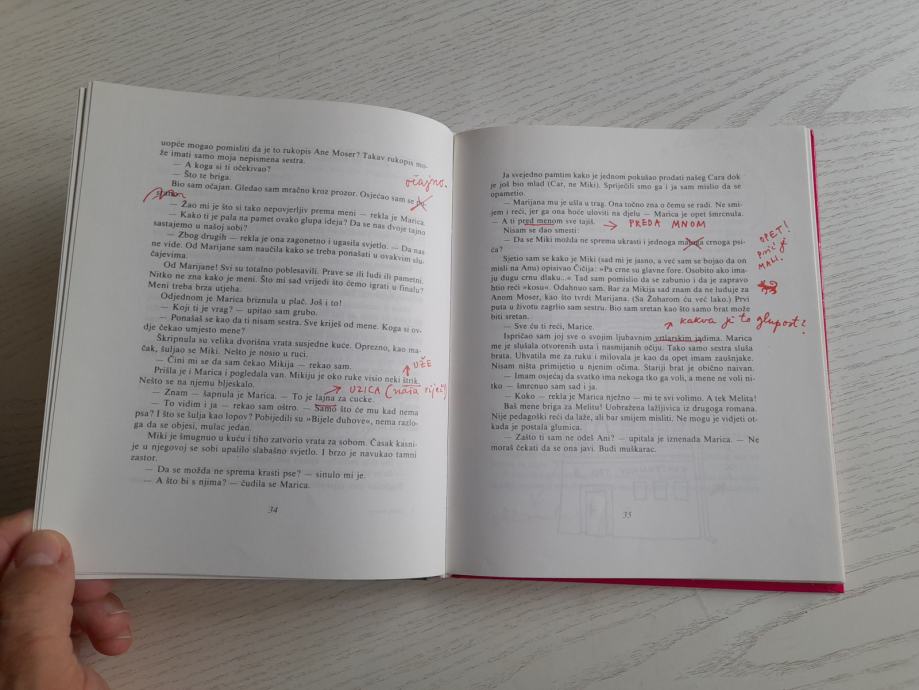 uopće mogao pomisliti da je to rukopis Ane Moser? Takav rukopis mo-
že imati samo moja nepismena sestra.
— A koga si ti očekivao?
— Što te briga.
Bio sam očajan. Gledao sam mračno kroz prozor. Osjećao sam se
očajno.
— Žao mi je što si tako nepovjerljiv prema meni — rekla je Marica.
— Kako ti je pala na pamet ovako glupa ideja? Da se nas dvoje tajno
sastajemo u našoj sobi?
— Zbog drugih — rekla je ona zagonetno i ugasila svjetlo. — Da nas
ne vide. Od Marijane sam naučila kako se treba ponašati u ovakvim slu-
čajevima.
Od Marijane! Svi su totalno poblesavili. Prave se ili ludi ili pametni.
Nitko ne zna kako je meni. Što mi sad vrijedi što ćemo igrati u finalu?
Meni treba brza utjeha.
Odjednom je Marica briznula u plač. Još i to!
— Koji ti je vrag? — upitao sam grubo.
— Ponašaš se kao da ti nisam sestra. Sve kriješ od mene. Koga si ov-
dje čekao umjesto mene?
Škripnula su velika dvorišna vrata susjedne kuće. Oprezno, kao ma-
čak, šuljao se Miki. Nešto je nosio u ruci.
— Čini mi se da sam čekao Mikija — rekao sam.
UŽE
Prišla je i Marica i pogledala van. Mikiju je oko ruke visio neki štrik.
Nešto se na njemu bljeskalo.
→ UZICA (naša riječ)
— Znam — šapnula je Marica. — To je lajna za cucke.
— To vidim i ja — rekao sam oštro. — Samo što će mu kad nema
psa? I što se šulja kao lopov? Pobijedili su »Bijele duhove«, nema razlo-
ga da se objesi, mulac jedan.
Miki je šmugnuo u kuću i tiho zatvorio vrata za sobom. Časak kasni-
je u njegovoj se sobi upalilo slabašno svjetlo. I brzo je navukao tamni
zastor.
— Da se možda ne sprema krasti pse? — sinulo mi je.
— A što bi s njima? — čudila se Marica.
34
Ja svejedno pamtim kako je jednom pokušao prodati našeg Cara dok
je još bio mlad (Car, ne Miki). Spriječili smo ga i ja sam mislio da se
opametio.
— Marijana mu je ušla u trag. Ona točno zna o čemu se radi. Ne smi-
jem i reći, jer ga ona hoće uloviti na djelu — Marica je opet šmrcnula.
— A ti pred menom sve tajiš.
→ PREDA MNOM
Nisam se dao smesti:
— Da se Miki možda ne sprema ukrasti i jednoga maloga crnoga psi-
ća?
OPET!
MALI!
Sjetio sam se kako je Miki (sad mi je jasno, a već sam se bojao da on
misli na Anu) opisivao Čičija: »Pa crne su glavne fore. Osobito ako ima-
ju dugu crnu dlaku..« Tad sam pomislio da se zabunio i da je zapravo
htio reći »kosu«. Odahnuo sam. Bar za Mikija sad znam da ne luduje za
Anom Moser, kao što tvrdi Marijana. (Sa Žoharom ću već lako.) Prvi
puta u životu zagrlio sam sestru. Bio sam sretan kao što samo brat može
biti sretan.
— Sve ću ti reći, Marice.
↗ kakva je to glupost?
Ispričao sam joj sve o svojim ljubavnim vrtlarskim jadima. Marica
me je slušala otvorenih usta i nasmijanih očiju. Tako samo sestra sluša
brata. Uhvatila me za ruku i milovala je kao da opet imam zaušnjake.
Nisam ništa primijetio u njenim očima. Stariji brat je obično naivan.
— Imam osjećaj da svatko ima nekoga tko ga voli, a mene ne voli ni-
tko — šmrcnuo sam sad i ja.
— Koko — rekla je Marica nježno — mi te svi volimo. A tek Melita!
Baš mene briga za Melitu! Uobražena lažljivica iz drugoga romana.
Nije pedagoški reći da laže, ali bar smijem misliti. Ne mogu je vidjeti ot-
kada je postala glumica.
— Zašto ti sam ne odeš Ani? — upitala je iznenada Marica. — Ne
moraš čekati da se ona javi. Budi muškarac.
35